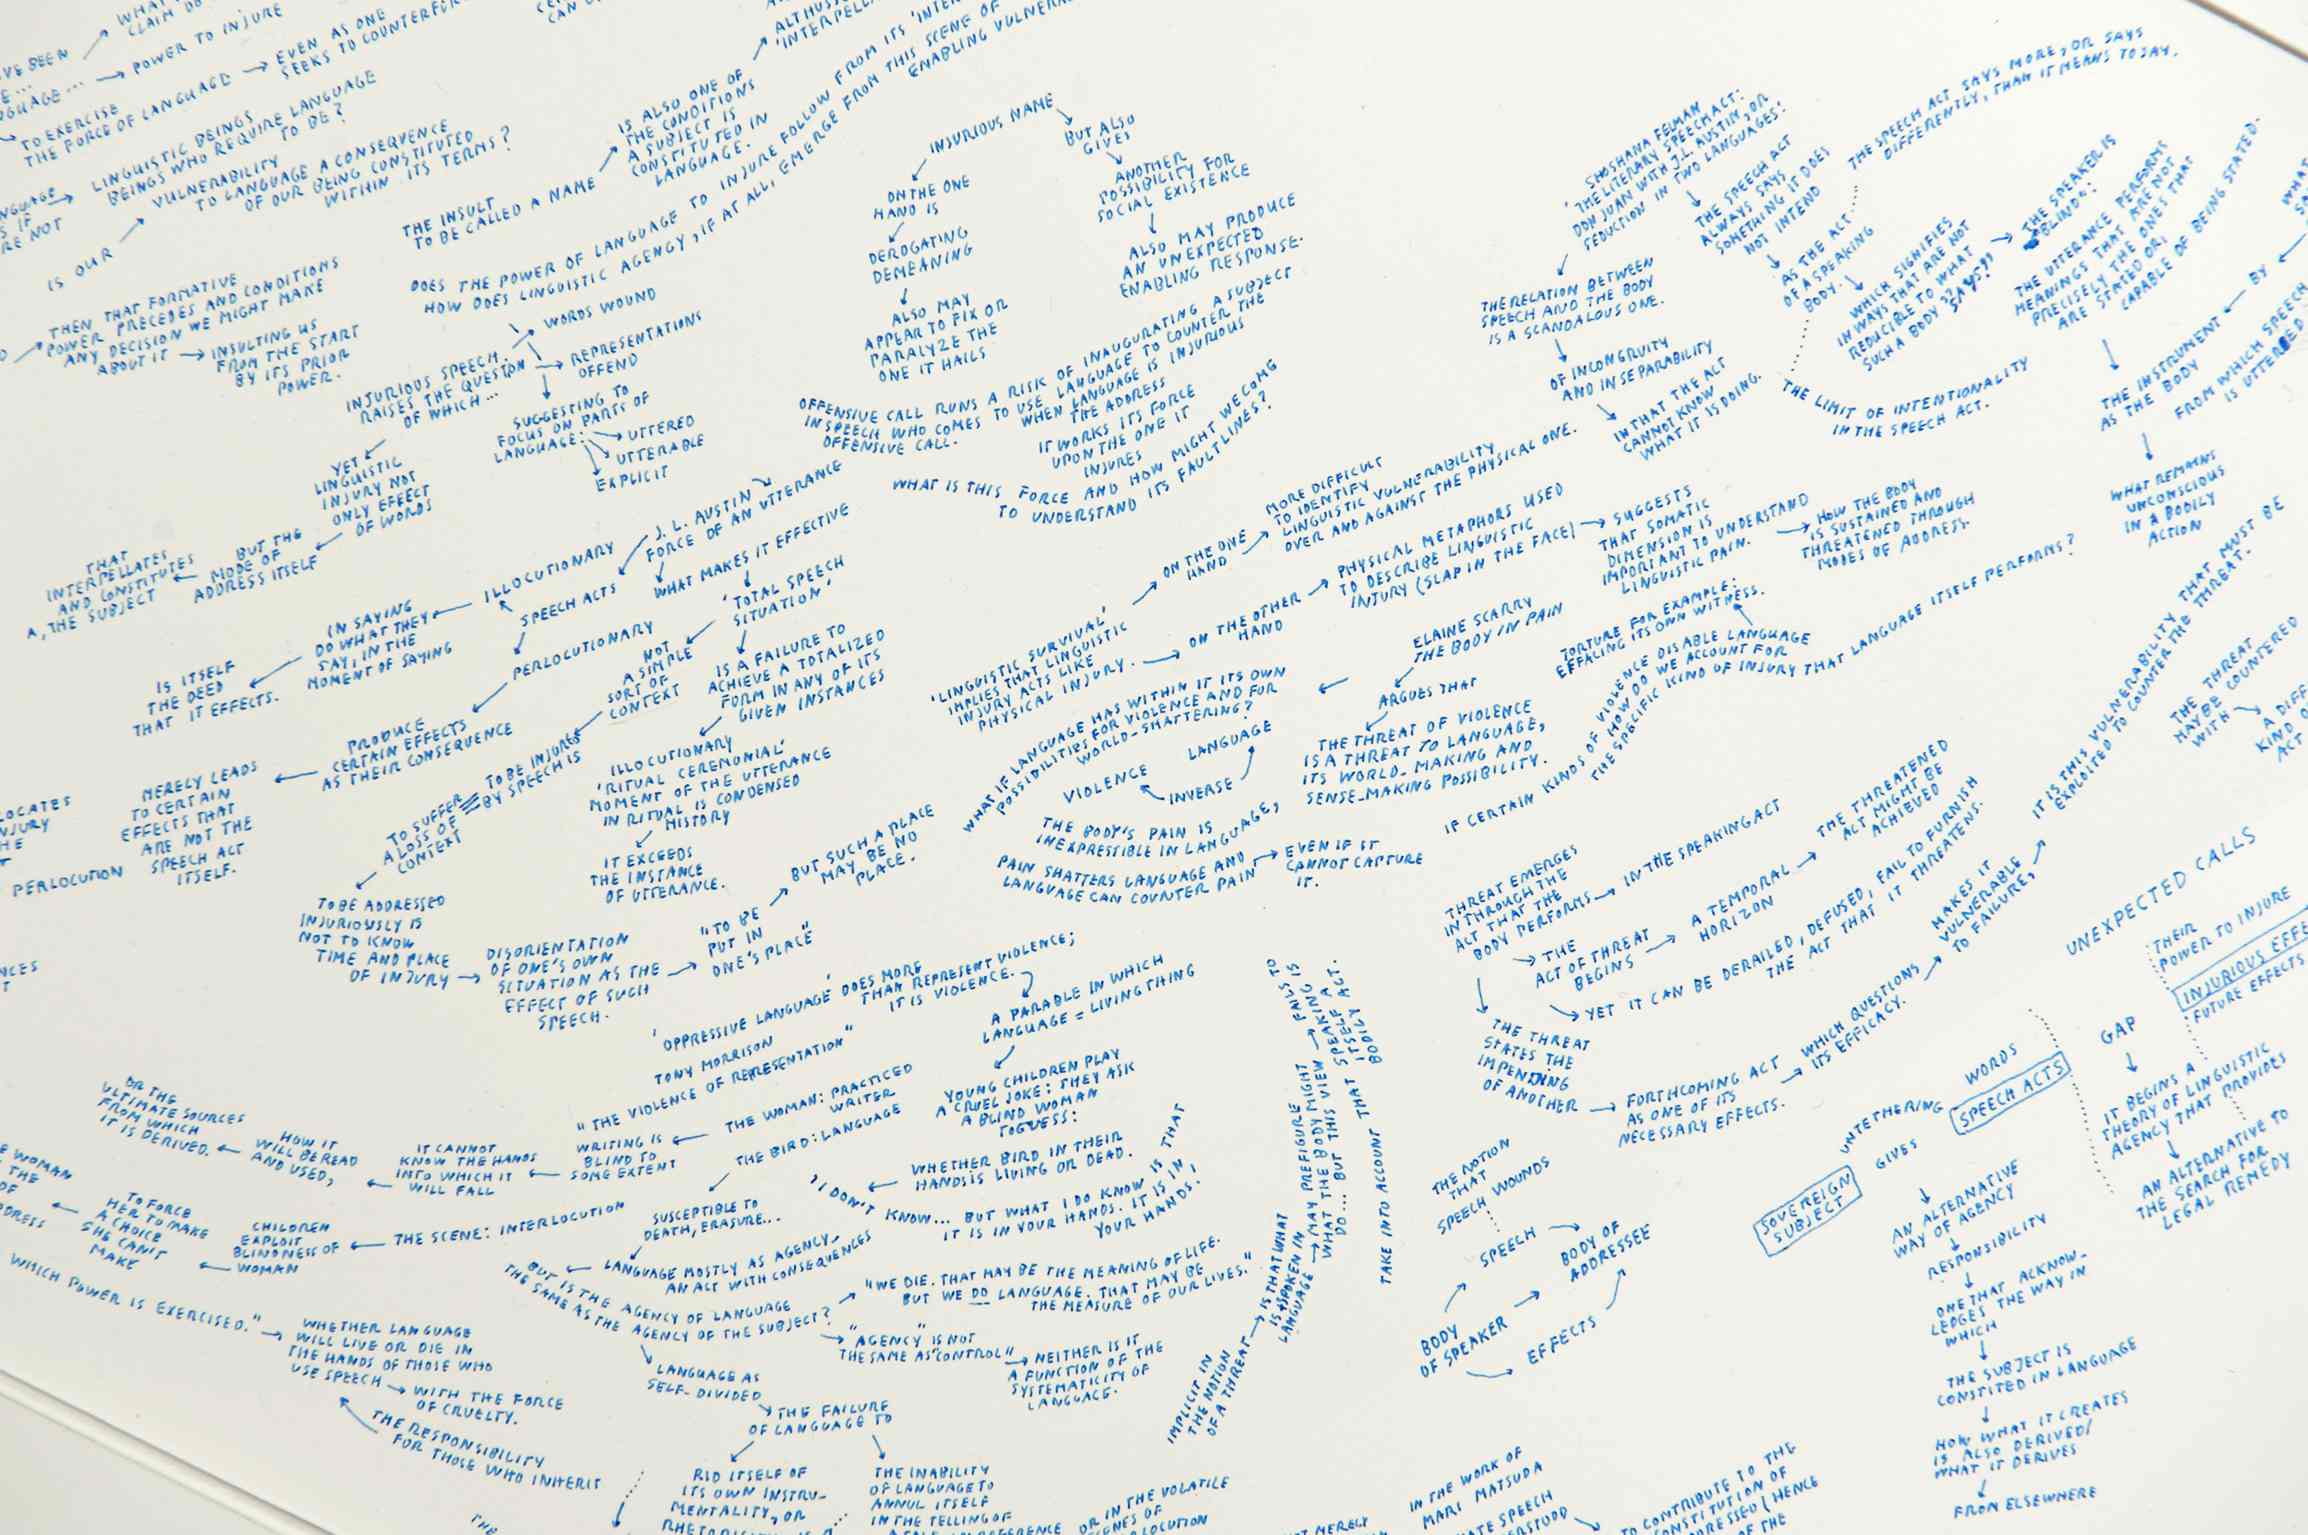 POWER TO INJURE
EVEN AS ONE
SEEKS TO
TO EXERCISE
THE FORCE OF LANGUAGE
LINGUISTIC BEINGS
BEINGS WHO REQUIRE LANGUAGE
TO BE?
IS OUR
VULNERABILITY
TO LANGUAGE A CONSEQUENCE
OF OUR BEING CONSTITUTED
WITHIN ITS TERMS?
THEN THAT FORMATIVE
POWER PRECEDES AND CONDITIONS
ANY DECISION WE MIGHT MAKE
ABOUT IT
INSULTING US
FROM THE START
BY ITS PRIOR
POWER.
THE INSULT
TO BE CALLED A NAME
IS ALSO ONE OF
THE CONDITIONS
A SUBJECT IS
CONSTITUTED IN
LANGUAGE.
DOES THE POWER OF LANGUAGE TO INJURE FOLLOW FROM ITS
HOW DOES LINGUISTIC AGENCY, IF AT ALL, EMERGE FROM THIS SCENE OF
ENABLING
INJURIOUS SPEECH
RAISES THE QUESTION
OF WHICH...
WORDS WOUND
REPRESENTATIONS
OFFEND
SUGGESTING TO
FOCUS ON PARTS OF
LANGUAGE:
UTTERED
UTTERABLE
EXPLICIT
YET
LINGUISTIC
INJURY NOT
ONLY EFFECT
OF WORDS
BUT THE
MODE OF
ADDRESS ITSELF
THAT
INTERPELLATES
AND CONSTITUTES
A, THE SUBJECT
INSURIOUS NAME
ON THE ONE
HAND IS
DEROGATING
DEMEANING
ALSO MAY
APPEAR TO FIX OR
PARALYZE THE
ONE IT HAILS
BUT ALSO
GIVES
ANOTHER
POSSIBILITY FOR
SOCIAL EXISTENCE
ALSO MAY PRODUCE
AN UNEXPECTED
ENABLING RESPONSE.
OFFENSIVE CALL RUNS A RISK OF INAUGURATING A SUBJECT
IN SPEECH WHO COMES TO USE LANGUAGE TO COUNTER THE
OFFENSIVE CALL.
WHEN LANGUAGE IS INJURIOUS
THE ADDRESS
IT WORKS ITS FORCE
UPON THE ONE IT
INJURES
WHAT IS THIS FORCE AND HOW MIGHT WE COME
TO UNDERSTAND ITS FAULTLINES?
J. L. AUSTIN
FORCE OF AN UTTERANCE
WHAT MAKES IT EFFECTIVE
SPEECH ACTS
ILLOCUTIONARY
IN SAYING
DO WHAT THEY
SAY, IN THE
MOMENT OF SAYING
IS ITSELF
THE DEED
THAT IT EFFECTS.
PERLOCUTIONARY
PRODUCE
CERTAIN EFFECTS
AS THEIR CONSEQUENCE
MERELY LEADS
TO CERTAIN
EFFECTS THAT
ARE NOT THE
SPEECH ACT
ITSELF.
PERLOCUTION
'TOTAL SPEECH
SITUATION'
NOT
A SIMPLE
SORT OF
CONTEXT
IS A FAILURE TO
ACHIEVE A TOTALIZED
FORM IN ANY OF ITS
GIVEN INSTANCES
ILLOCUTIONARY
'RITUAL CEREMONIAL'
MOMENT OF THE UTTERANCE
IN RITUAL IS CONDENSED
HISTORY
IT EXCEEDS
THE INSTANCE
OF UTTERANCE.
TO BE INJURED
BY SPEECH IS
TO SUFFER
A LOSS OF
CONTEXT
TO BE ADDRESSED
INJURIOUSLY IS
NOT TO KNOW
TIME AND PLACE
OF INJURY
DISORIENTATION
OF ONE'S OWN
SITUATION AS THE
EFFECT OF SUCH
SPEECH.
"TO BE
PUT IN
ONE'S PLACE"
BUT SUCH A PLACE
MAY BE NO
PLACE.
'LINGUISTIC SURVIVAL'
IMPLIES THAT LINGUISTIC
INJURY ACTS LIKE
PHYSICAL INJURY.
ON THE ONE
HAND
MORE DIFFICULT
TO IDENTIFY
LINGUISTIC VULNERABILITY
OVER AND AGAINST THE PHYSICAL ONE.
ON THE OTHER
HAND
PHYSICAL METAPHORS USED
TO DESCRIBE LINGUISTIC
INJURY (SLAP IN THE FACE)
SUGGESTS
THAT SOMATIC
DIMENSION IS
IMPORTANT TO UNDERSTAND
LINGUISTIC PAIN.
HOW THE BODY
IS SUSTAINED AND
THREATENED THROUGH
MODES OF ADDRESS.
WHAT IF LANGUAGE HAS WITHIN IT ITS OWN
POSSIBILITIES FOR VIOLENCE AND FOR
WORLD-SHATTERING?
ELAINE SCARRY
THE BODY IN PAIN
ARGUES THAT
THE THREAT OF VIOLENCE
IS A THREAT TO LANGUAGE,
ITS WORLD-MAKING AND
SENSE-MAKING POSSIBILITY.
VIOLENCE
LANGUAGE
INVERSE
THE BODY'S PAIN IS
INEXPRESSIBLE IN LANGUAGE,
PAIN SHATTERS LANGUAGE AND
LANGUAGE CAN COUNTER PAIN
EVEN IF IT
CANNOT CAPTURE
IT.
TORTURE FOR EXAMPLE:
EFFACING ITS OWN WITNESS.
IF CERTAIN KINDS OF VIOLENCE DISABLE LANGUAGE
HOW DO WE ACCOUNT FOR
THE SPECIFIC KIND OF INJURY THAT LANGUAGE ITSELF PERFORMS?
SHOSHANA FELMAN
'THE LITERARY SPEECH ACT:
DON JUAN WITH J.L. AUSTIN, OR
SEDUCTION IN TWO LANGUAGES.'
THE RELATION BETWEEN
SPEECH AND THE BODY
IS A SCANDALOUS ONE.
OF INCONGRUITY
AND INSEPARABILITY
IN THAT THE ACT
CANNOT KNOW
WHAT IT IS DOING.
THE SPEECH ACT
ALWAYS SAYS
SOMETHING IT DOES
NOT INTEND
AS THE ACT
OF A SPEAKING
BODY.
THE SPEECH ACT SAYS MORE, OR SAYS
DIFFERENTLY, THAN IT MEANS TO SAY.
WHICH SIGNIFIES
IN WAYS THAT ARE NOT
REDUCIBLE TO WHAT
SUCH A BODY "SAYS"
THE SPEAKER IS
"BLIND":
THE UTTERANCE PERFORMS
MEANINGS THAT ARE NOT
PRECISELY THE ONES THAT
ARE STATED OR,
CAPABLE OF BEING STATED.
THE LIMIT OF INTENTIONALITY
IN THE SPEECH ACT.
BY
THE INSTRUMENT
AS THE BODY
FROM WHICH SPEECH
IS UTTERED
WHAT REMAINS
UNCONSCIOUS
IN A BODILY
ACTION
THREAT EMERGES
IN THROUGH THE
ACT THAT THE
BODY PERFORMS
IN THE SPEAKING ACT
THE
ACT OF THREAT
BEGINS
A TEMPORAL
HORIZON
THE THREATENED
ACT MIGHT BE
ACHIEVED
YET IT CAN BE DERAILED, DEFUSED, FAIL TO FURNISH
THE ACT THAT IT THREATENS.
THE THREAT
STATES THE
IMPENDING
OF ANOTHER
FORTHCOMING ACT
AS ONE OF ITS
NECESSARY EFFECTS.
WHICH QUESTIONS
ITS EFFICACY.
MAKES IT
VULNERABLE
TO FAILURE,
IT IS THIS VULNERABILITY THAT MUST BE
EXPLOITED TO COUNTER THE THREAT.
THE THREAT
MAY BE COUNTERED
WITH
'OPPRESSIVE LANGUAGE' DOES MORE
THAN REPRESENT VIOLENCE;
IT IS VIOLENCE.
TONY MORRISON
"THE VIOLENCE OF REPRESENTATION"
A PARABLE IN WHICH
LANGUAGE = LIVING THING
YOUNG CHILDREN PLAY
A CRUEL JOKE: THEY ASK
A BLIND WOMAN
TO GUESS:
WHETHER BIRD IN THEIR
HANDS IS LIVING OR DEAD.
"I DON'T KNOW... BUT WHAT I DO KNOW IS THAT
IT IS IN YOUR HANDS. IT IS IN
YOUR HANDS.
THE WOMAN: PRACTICED
WRITER
THE BIRD: LANGUAGE
"WRITING IS
BLIND TO
SOME EXTENT
IT CANNOT
KNOW THE HANDS
INTO WHICH IT
WILL FALL
HOW IT
WILL BE READ
AND USED,
OR THE
ULTIMATE SOURCES
FROM WHICH
IT IS DERIVED.
THE SCENE: INTERLOCUTION
CHILDREN
EXPLOIT
BLINDNESS OF
WOMAN
TO FORCE
HER TO MAKE
A CHOICE
SHE CAN'T
MAKE
WHICH POWER IS EXERCISED."
SUSCEPTIBLE TO
DEATH, ERASURE...
LANGUAGE MOSTLY AS AGENCY-
AN ACT WITH CONSEQUENCES
BUT IS THE AGENCY OF LANGUAGE
THE SAME AS THE AGENCY OF THE SUBJECT?
"WE DIE. THAT MAY BE THE MEANING OF LIFE.
BUT WE DO LANGUAGE. THAT MAY BE
THE MEASURE OF OUR LIVES."
"AGENCY" IS NOT
THE SAME AS "CONTROL"
NEITHER IS IT
A FUNCTION OF THE
SYSTEMATICITY OF
LANGUAGE.
WHETHER LANGUAGE
WILL LIVE OR DIE IN
THE HANDS OF THOSE WHO
USE SPEECH
WITH THE FORCE
OF CRUELTY.
THE RESPONSIBILITY
FOR THOSE WHO INHERIT
LANGUAGE AS
SELF-DIVIDED
THE FAILURE
OF LANGUAGE TO
RID ITSELF OF
ITS OWN INSTRU-
MENTALITY, OR
THE INABILITY
OF LANGUAGE TO
ANNUL ITSELF
IN THE TELLING OF
OR IN THE VOLATILE
IMPLICIT IN
THE NOTION
OF A THREAT
IS THAT WHAT
IS SPOKEN IN
LANGUAGE
MAY PREFIGURE
WHAT THE BODY MIGHT
DO... BUT THIS VIEW
FAILS TO
TAKE INTO ACCOUNT THAT SPEAKING IS
ITSELF A
BODILY ACT.
THE NOTION
THAT
SPEECH WOUNDS
SPEECH
BODY OF
ADDRESSEE
BODY
OF SPEAKER
EFFECTS
UNEXPECTED CALLS
THEIR
POWER TO INJURE
INJURIOUS
FUTURE EFFECTS
GAP
IT BEGINS A
THEORY OF LINGUISTIC
AGENCY THAT PROVIDES
AN ALTERNATIVE TO
THE SEARCH FOR
LEGAL REMEDY
WORDS
SPEECH ACTS
UNTETHERING
SOVEREIGN
SUBJECT
GIVES
AN ALTERNATIVE
WAY OF AGENCY
RESPONSIBILITY
ONE THAT ACKNOW-
LEDGES THE WAY IN
WHICH
THE SUBJECT IS
CONSTITED IN LANGUAGE
HOW WHAT IT CREATES
IS ALSO DERIVED/
WHAT IT DERIVES
FROM ELSEWHERE
IN THE WORK OF
MARI MATSUDA
SPEECH
TO CONTRIBUTE TO THE